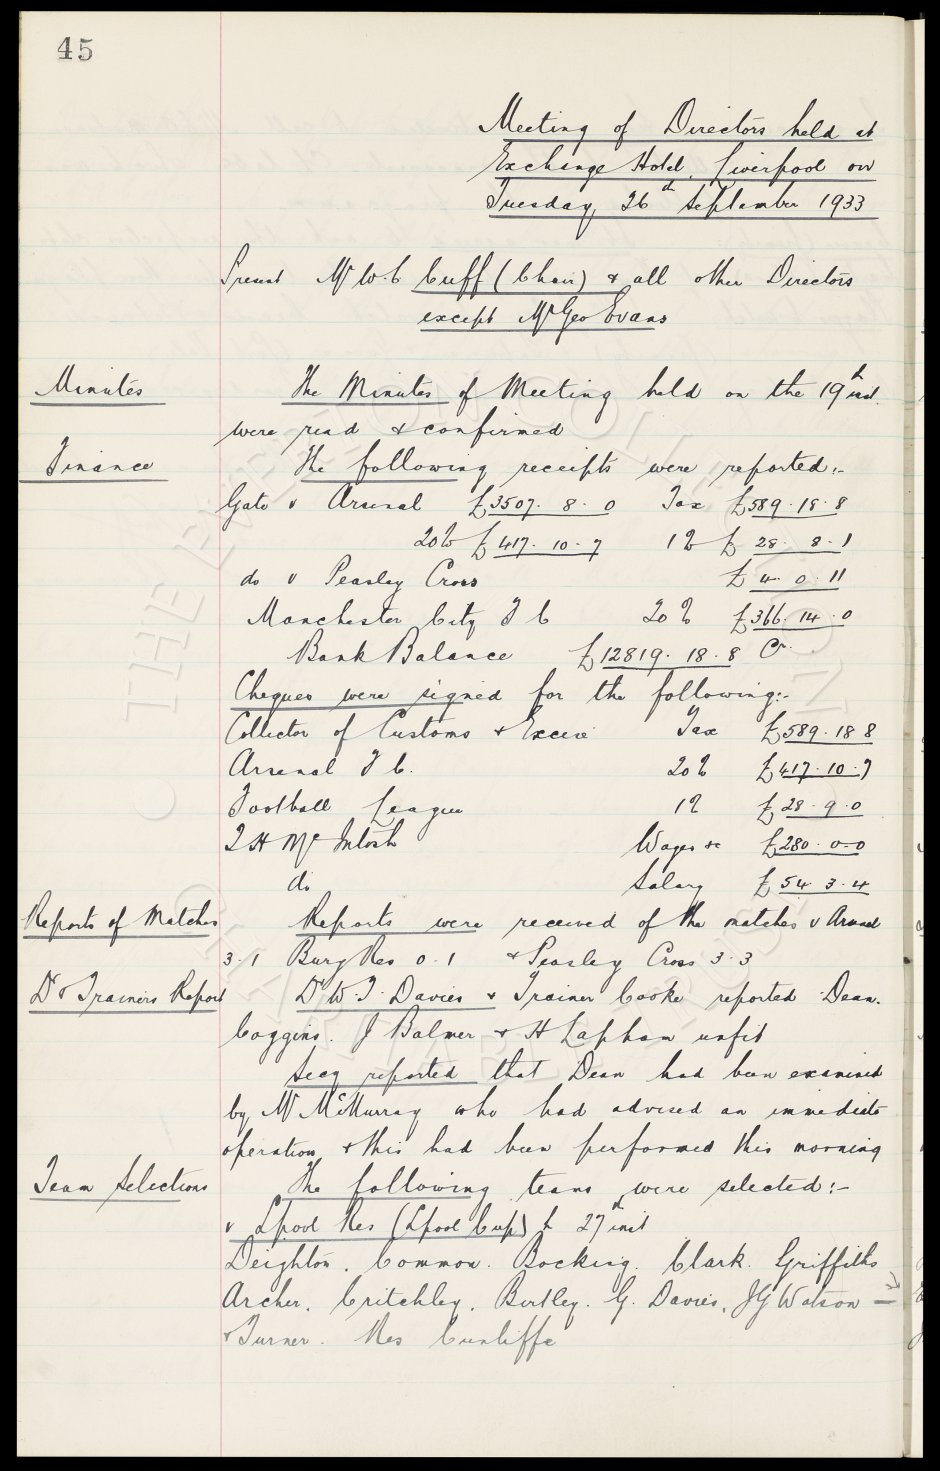 45
Meeting of Directors held at
Exchange Hotel, Liverpool on
Tuesday, 26th September 1933
Present Mr W.C Cuff (Chair) & all other Directors
except Mr Geo Evans
Minutes The Minutes of Meeting held on the 19th inst.
were read & confirmed
Finance The following receipts were reported:-
Gate v Arsenal £3507. 8. 0 Tax £589. 18. 8
20% £417. 10. 7 1% £ 28. 8. 1
do v Peasley Cross £ 4. 0. 11
Manchester City F C 20% £366. 14. 0
Bank Balance £12819. 18. 8 Cr.
Cheques were signed for the following:-
Collector of Customs & Excise Tax £589. 18 8
Arsenal F C. 20% £417. 10. 7
Football League 1% £28. 9. 0
T H McIntosh Wages &c £280. 0-0
do Salary £54. 3. 4
Reports of Matches Reports were received of the matches v Arsenal
3.1 Bury Res 0.1 & Peasley Cross 3.3
Dr & Trainers Report Dr W.T. Davies & Trainer Cooke reported Dean.
Coggins. J Balmer & H Lapham unfit
Secy reported that Dean had been examined
by Mr McMurray who had advised an immediate
operation & this had been performed this morning
Team Selections The following teams were selected:-
v L'pool Res (L'pool Cup) h 27th inst
Deighton. Common. Bocking. Clark. Griffiths
Archer. Critchley. Birtley. G. Davies. JG Watson —
& Turner. Res Cunliffe
THE EVERTON COLLECTION